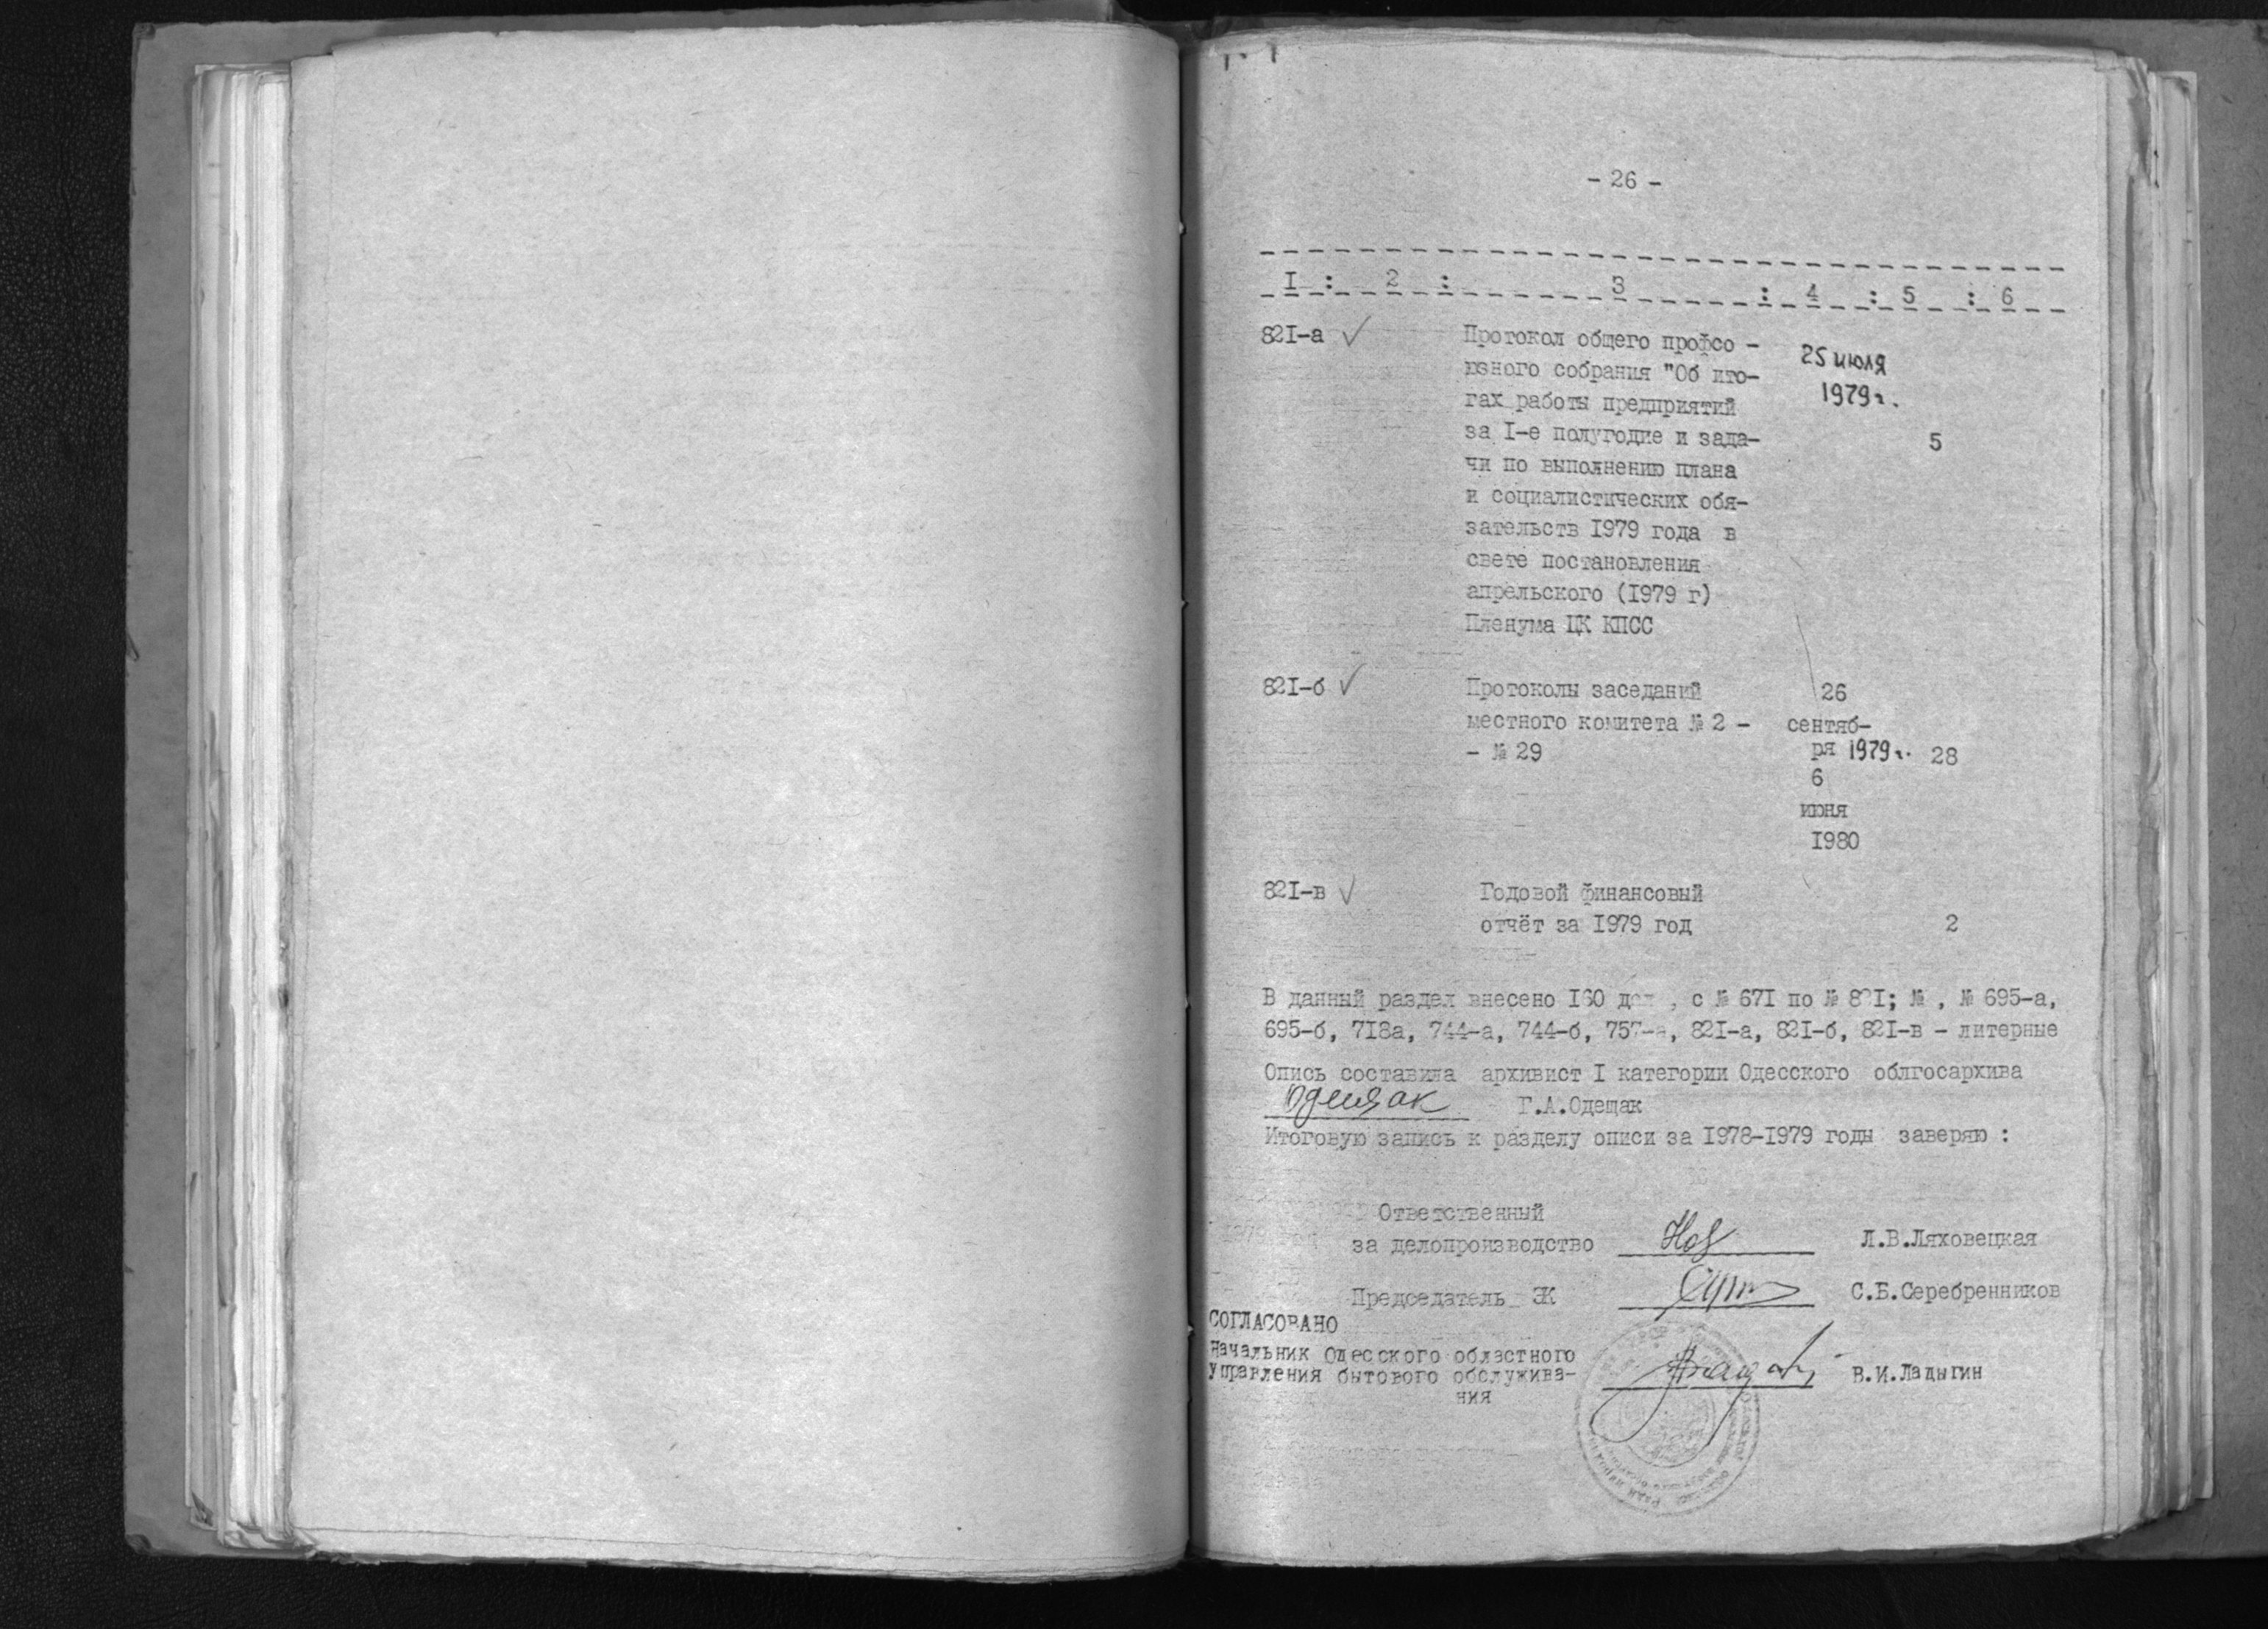 - 26 -
I : 2 : 3 : 4 : 5 : 6
821-а ✓ Протокол общего профсо -
юзного собрания "Об ито- 25 июля
гах работы предприятий 1979 г.
за I-е полугодие и зада- 5
чи по выполнению плана
и социалистических обя-
зательств 1979 года в
свете постановления
апрельского (1979 г)
Пленума ЦК КПСС
821-б ✓ Протоколы заседаний 26
местного комитета № 2 - сентяб-
- № 29 ря 1979 г. 28
6
июня
1980
821-в ✓ Годовой финансовый
отчёт за 1979 год 2
В данный раздел внесено 160 , с № 671 по № 821; № , № 695-а,
695-б, 718а, 744-а, 744-б, 757-а, 821-а, 821-б, 821-в - литерные
Опись составила архивист I категории Одесского облгосархива
Одещак Г.А.Одещак
Итоговую запись к разделу описи за 1978-1979 годы заверяю :
Ответственный
за делопроизводство Л.В.Ляховецкая
Председатель ЭК С.Б.Серебренников
СОГЛАСОВАНО
Начальник Одесского областного
Управления бытового обслужива- В.И.Ладыгин
ния